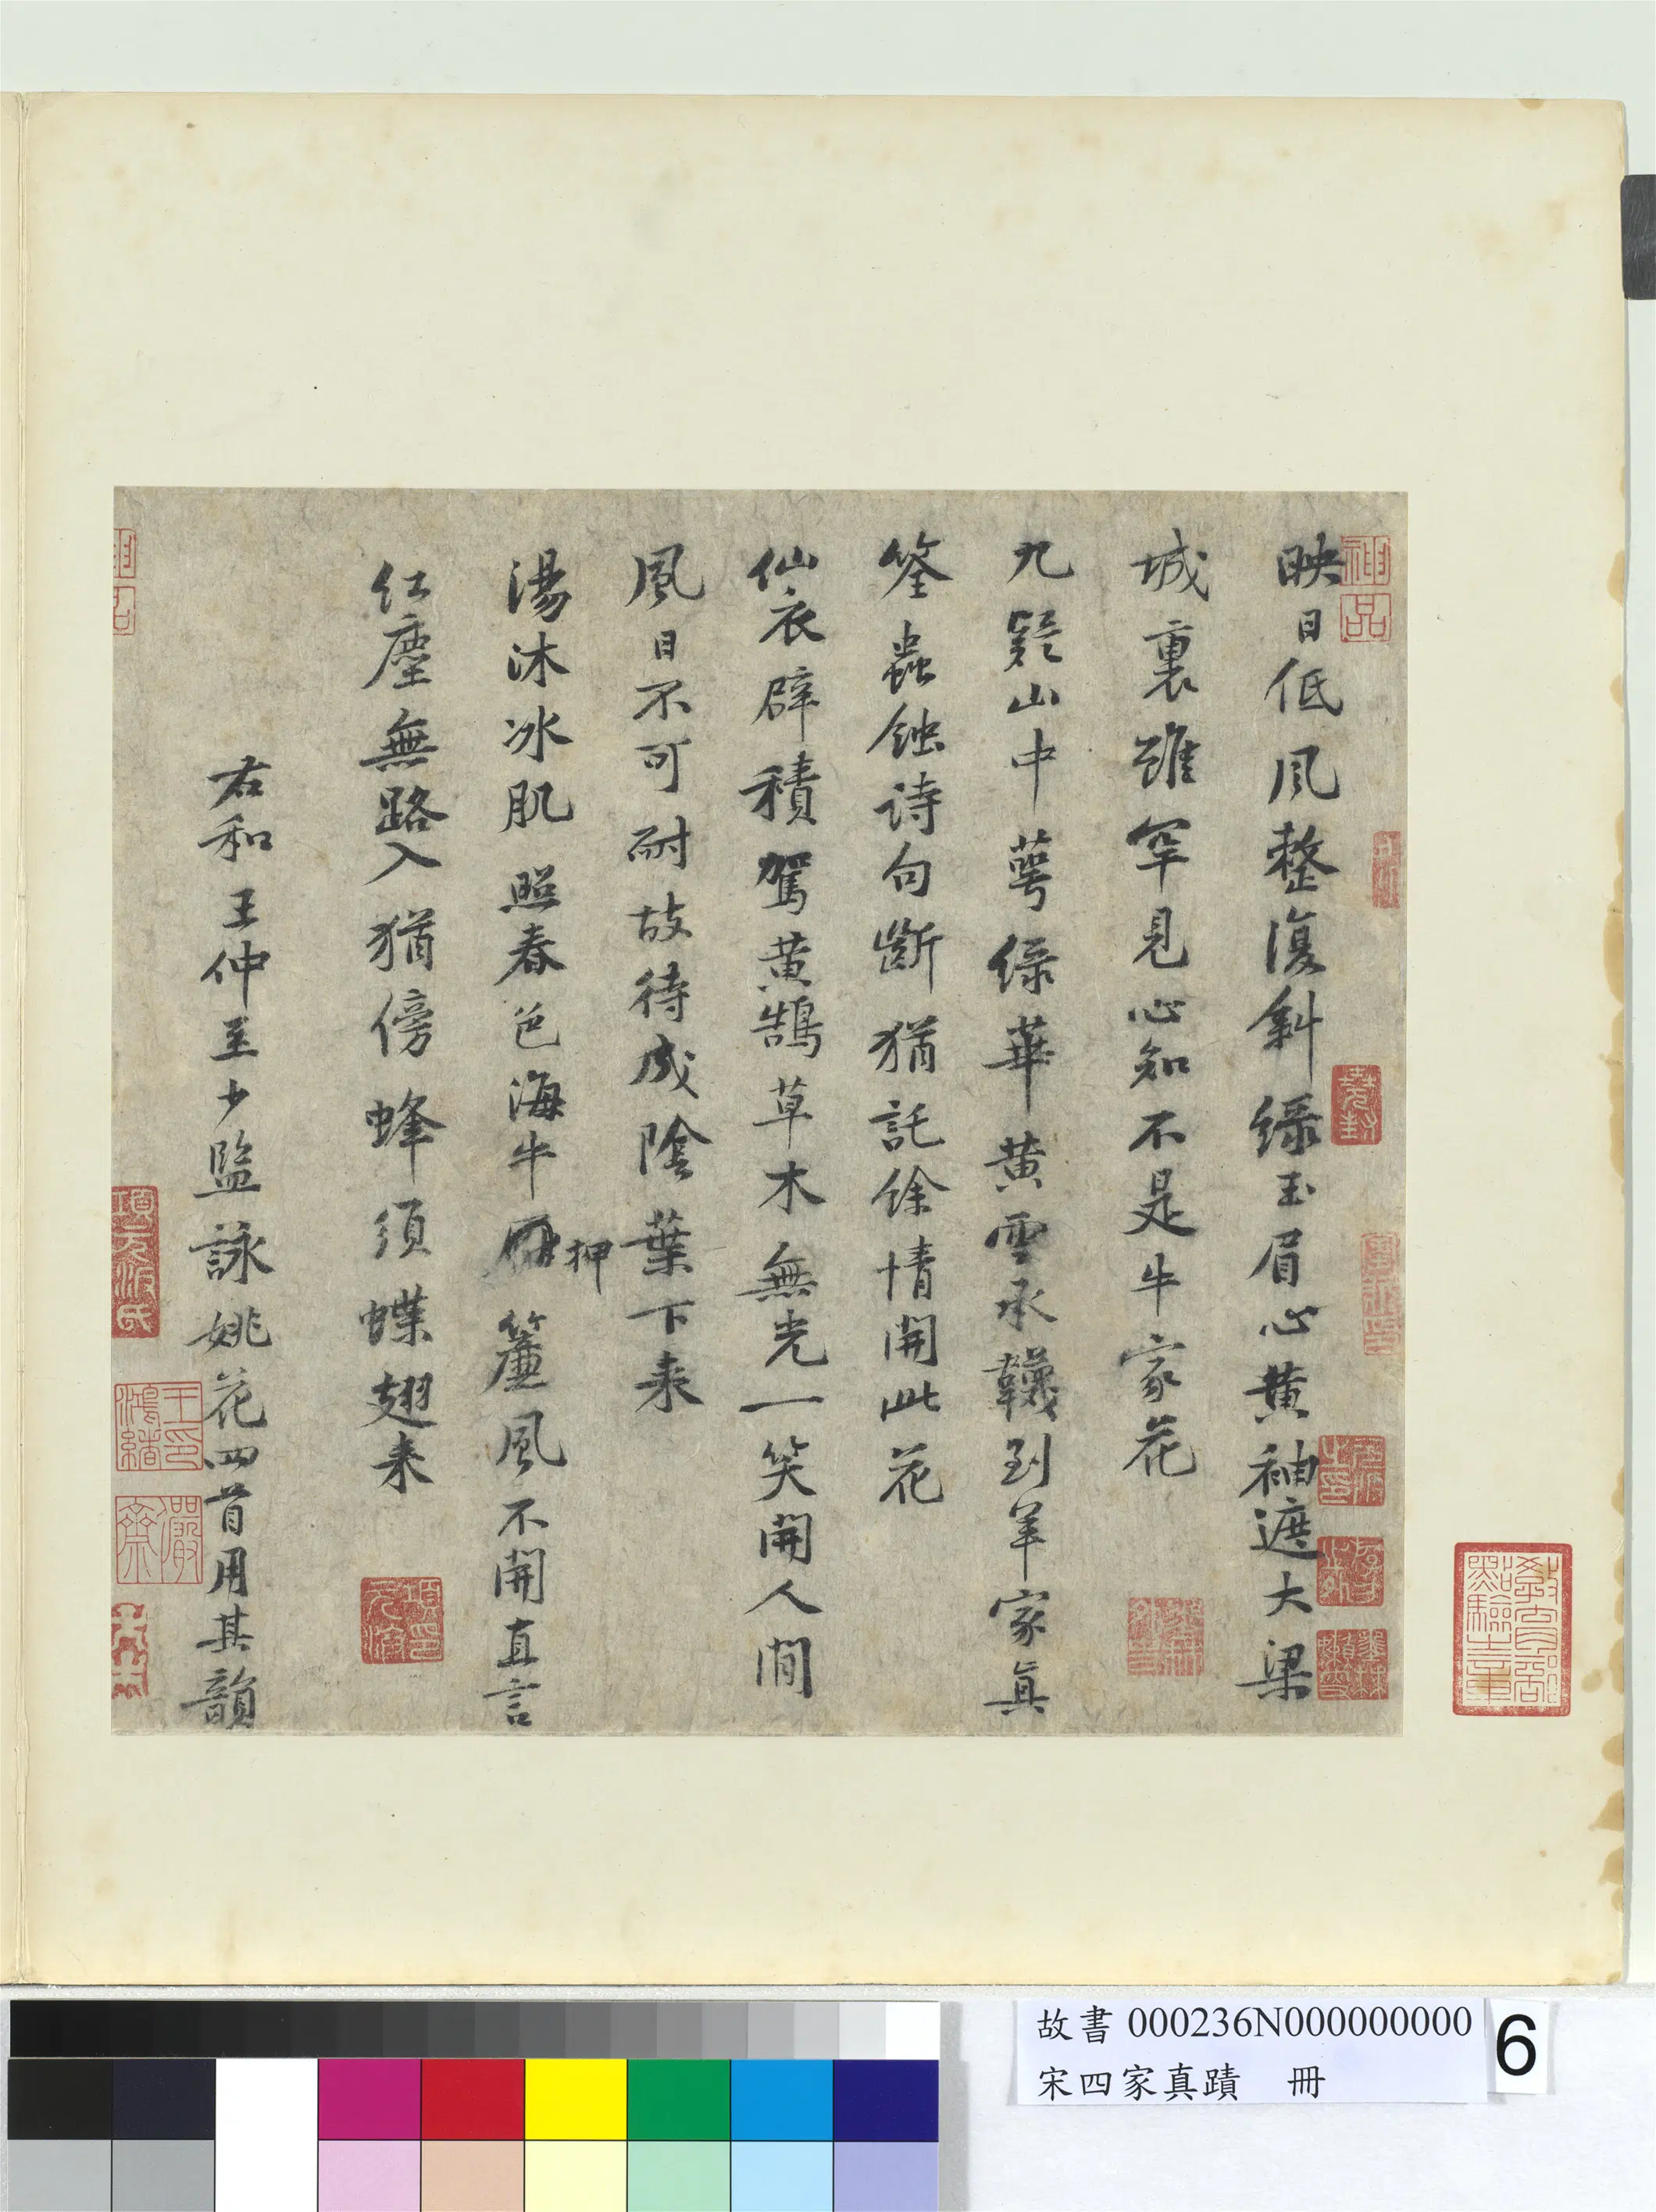 映日低風整復斜綠玉眉心黃袖遮大梁
城裏雖罕見心知不是牛家花
九疑山中萼綠華黃雲承韈到羊家真
筌蟲蝕詩句斷猶託餘情開此花
仙衣襞積駕黃鵠草木無光一笑開人間
風日不可耐故待成陰葉下来
湯沐冰肌照春色海牛押簾風不開直言
紅塵無路入猶傍蜂須蝶翅来
右和王仲至少監詠姚花四首用其韻
神品
項元汴氏
項元汴印
故書 000236N000000000
宋四家真蹟 冊
6